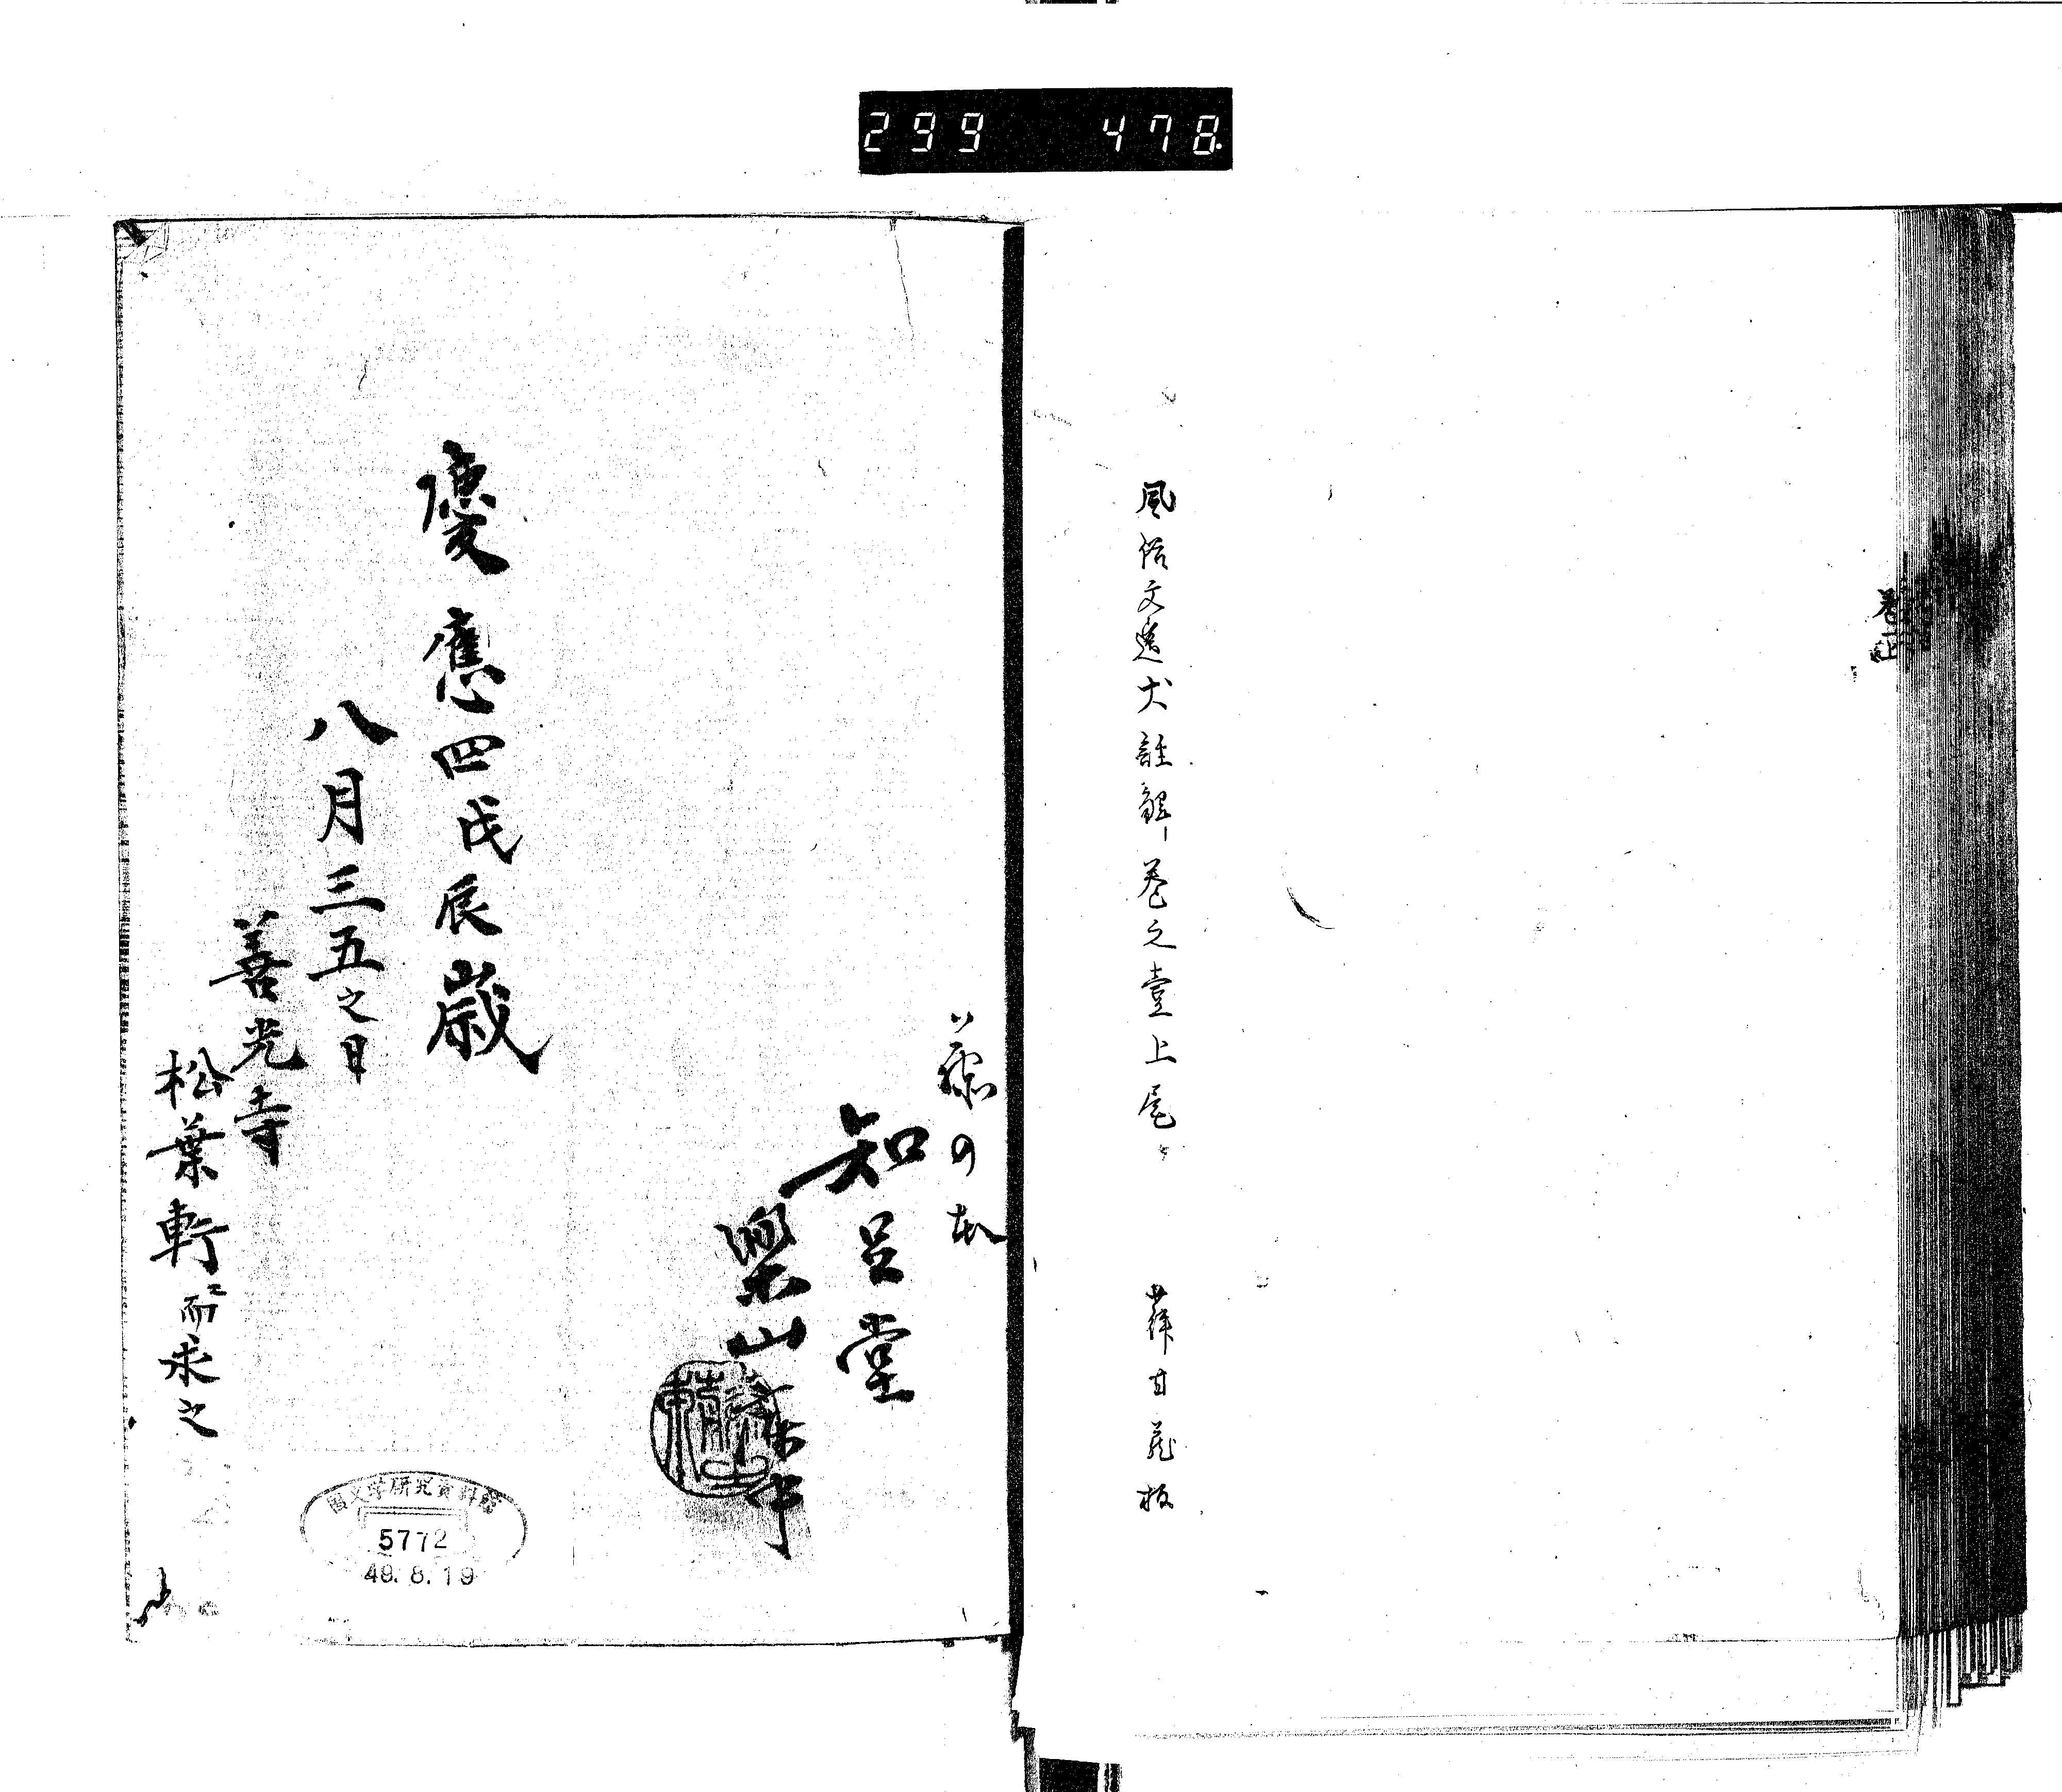 299 478
風俗文選犬註解巻之壹上尾
藤の本
知足堂
樂山
慶應四戊辰歳
八月三五之日
善光寺
松葉軒ニ而求之
国文学研究資料館
5772
49.8.19